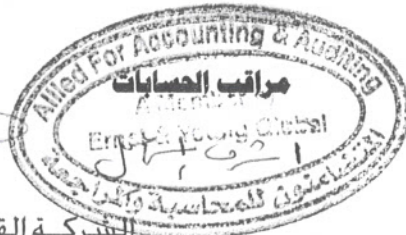 Allied For Accounting & Auditing
مراقب الحسابات
Ernst & Young Global
المتضامنون للمحاسبة والمراجعة